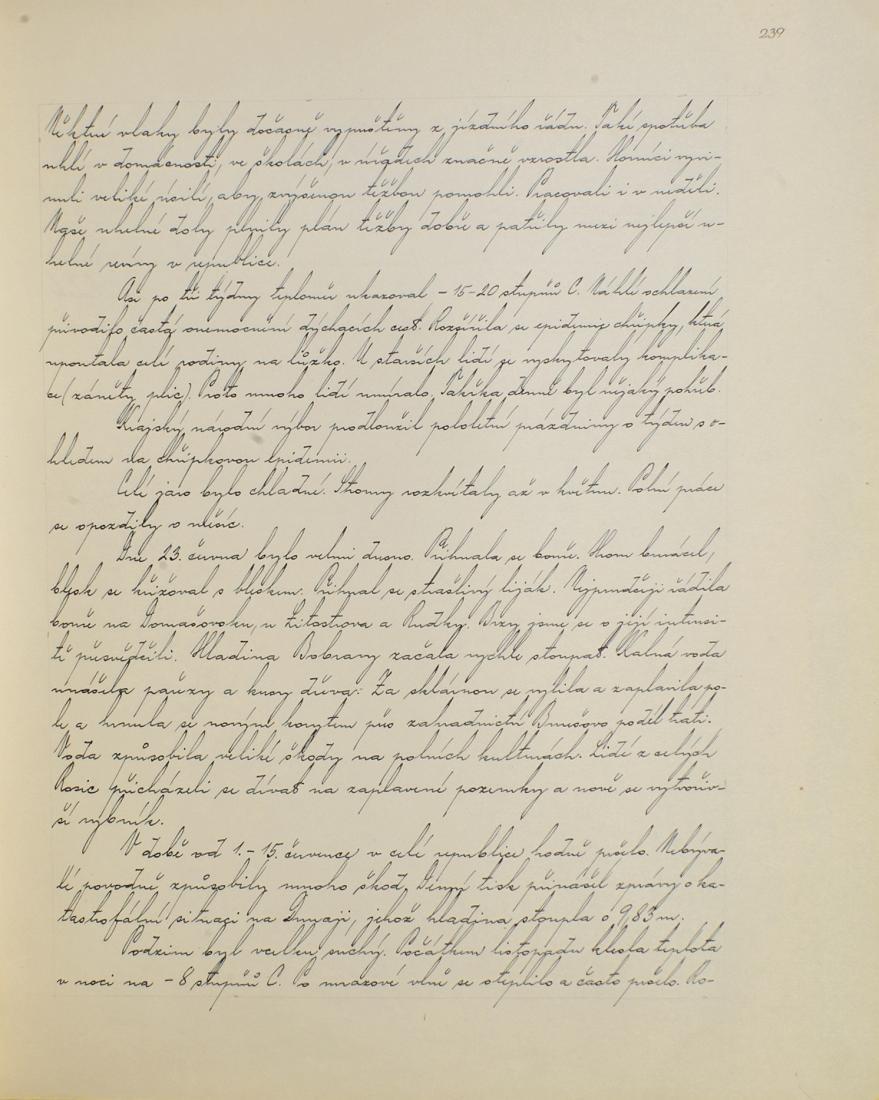 239
Některé vlaky byly dočasně vypuštěny z jízdního řádu. Také spotřeba
uhlí v domácnosti, ve školách, v úřadech značně vzrostla. Horníci vyvi-
nuli veliké úsilí, aby zvýšenou těžbou pomohli. Pracovali i v neděli.
Naše uhelné doly plnily plán těžby dobře a patřily mezi nejlepší u-
helné revíry v republice.
Asi po tři týdny teploměr ukazoval - 15-20 stupňů C. Náhlé ochlazení
přivodilo častá onemocnění dýchacích cest. Rozšířila se epidemie chřipky, která
upoutala celé rodiny na lůžko. U starších lidí se vyskytovaly komplika-
ce (záněty plic). Proto mnoho lidí umíralo. Takřka denně byl nějaký pohřeb.
Krajský národní výbor prodloužil pololetní prázdniny o týden s o-
hledem na chřipkovou epidemii.
Celé jaro bylo chladné. Stromy rozkvétaly až v květnu. Polní práce
se opozdily o měsíc.
Dne 23. června bylo velmi dusno. Přihnala se bouře. Hrom burácel,
blesk se křižoval s bleskem. Přihnal se strašlivý liják. Nejprudčeji řádila
bouře na Domašovsku, u Litostrova a Rudky. Brzy jsme se o její intensi-
tě přesvědčili. Hladina Bobravy začala rychle stoupat. Kalná voda
unášela pařezy a kusy dřeva. Za sklárnou se vylila a zaplavila po-
le a hrnula se novým korytem přes zahradnictví Brnešovo podél trati.
Voda způsobila veliké škody na polních kulturách. Lidé z celých
Rosic přicházeli se dívat na zaplavené pozemky a nově se vytvořiv-
ší rybník.
V době od 1.-15. července v celé republice hodně pršelo. Nebýva-
lé povodně způsobily mnoho škod. Denní tisk přinášel zprávy o ka-
tastrofální situaci na Dunaji, jehož hladina stoupla o 9,83 m.
Podzim byl vcelku suchý. Počátkem listopadu klesla teplota
v noci na - 8 stupňů C. Po mrazové vlně se oteplilo a často pršelo. Ro-